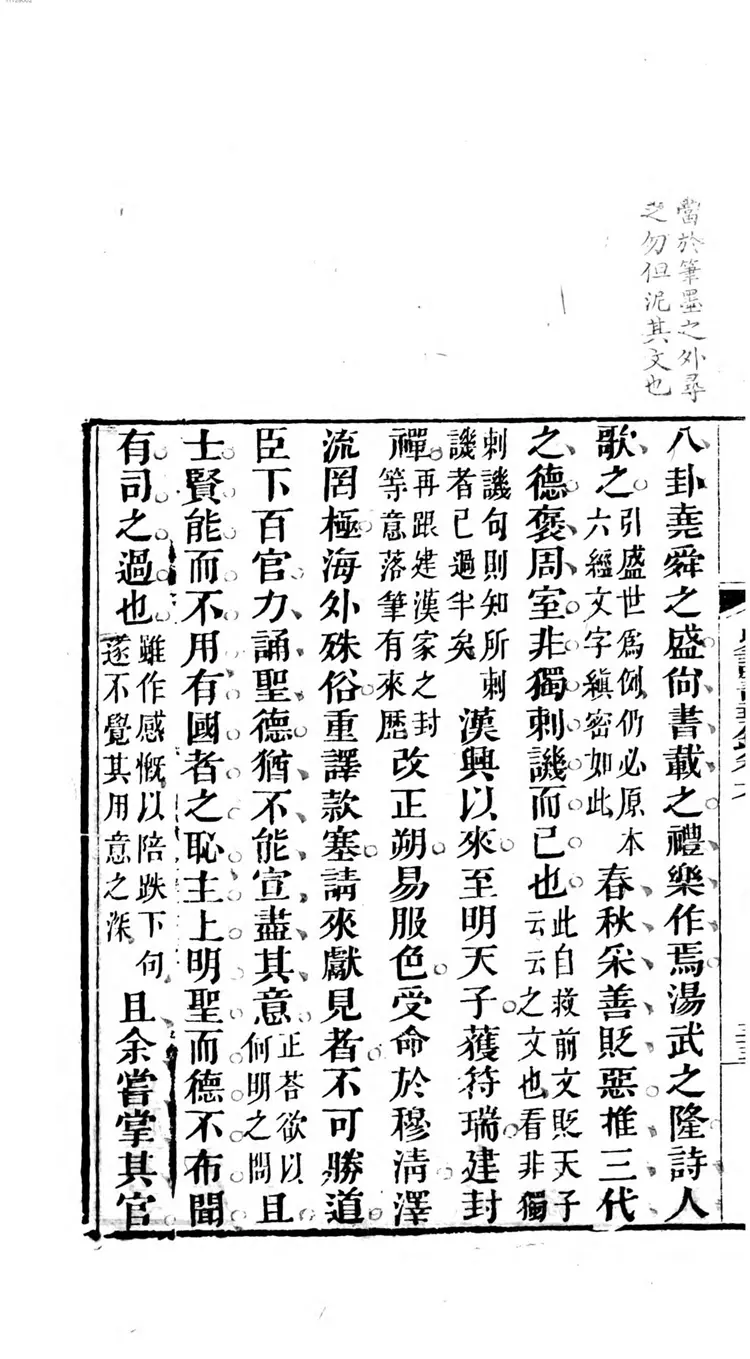 當於筆墨之外尋
之勿但泥其文也
八卦堯舜之盛尙書載之禮樂作焉湯武之隆詩人
歌之引盛世爲例仍必原本六經文字縝密如此春秋采善貶惡推三代
之德褒周室非獨刺譏而已也此自救前文貶天子云云之文也看非獨
刺譏句則知所刺譏者已過半矣漢興以來至明天子獲符瑞建封
禪再跟建漢家之封禪等意落筆有來歷改正朔易服色受命於穆淸澤
流罔極海外殊俗重譯款塞請來獻見者不可勝道
臣下百官力誦聖德猶不能宣盡其意正荅欲以何明之問且
士賢能而不用有國者之恥主上明聖而德不布聞
有司之過也雖作感慨以陪跌下句遂不覺其用意之深且余嘗掌其官